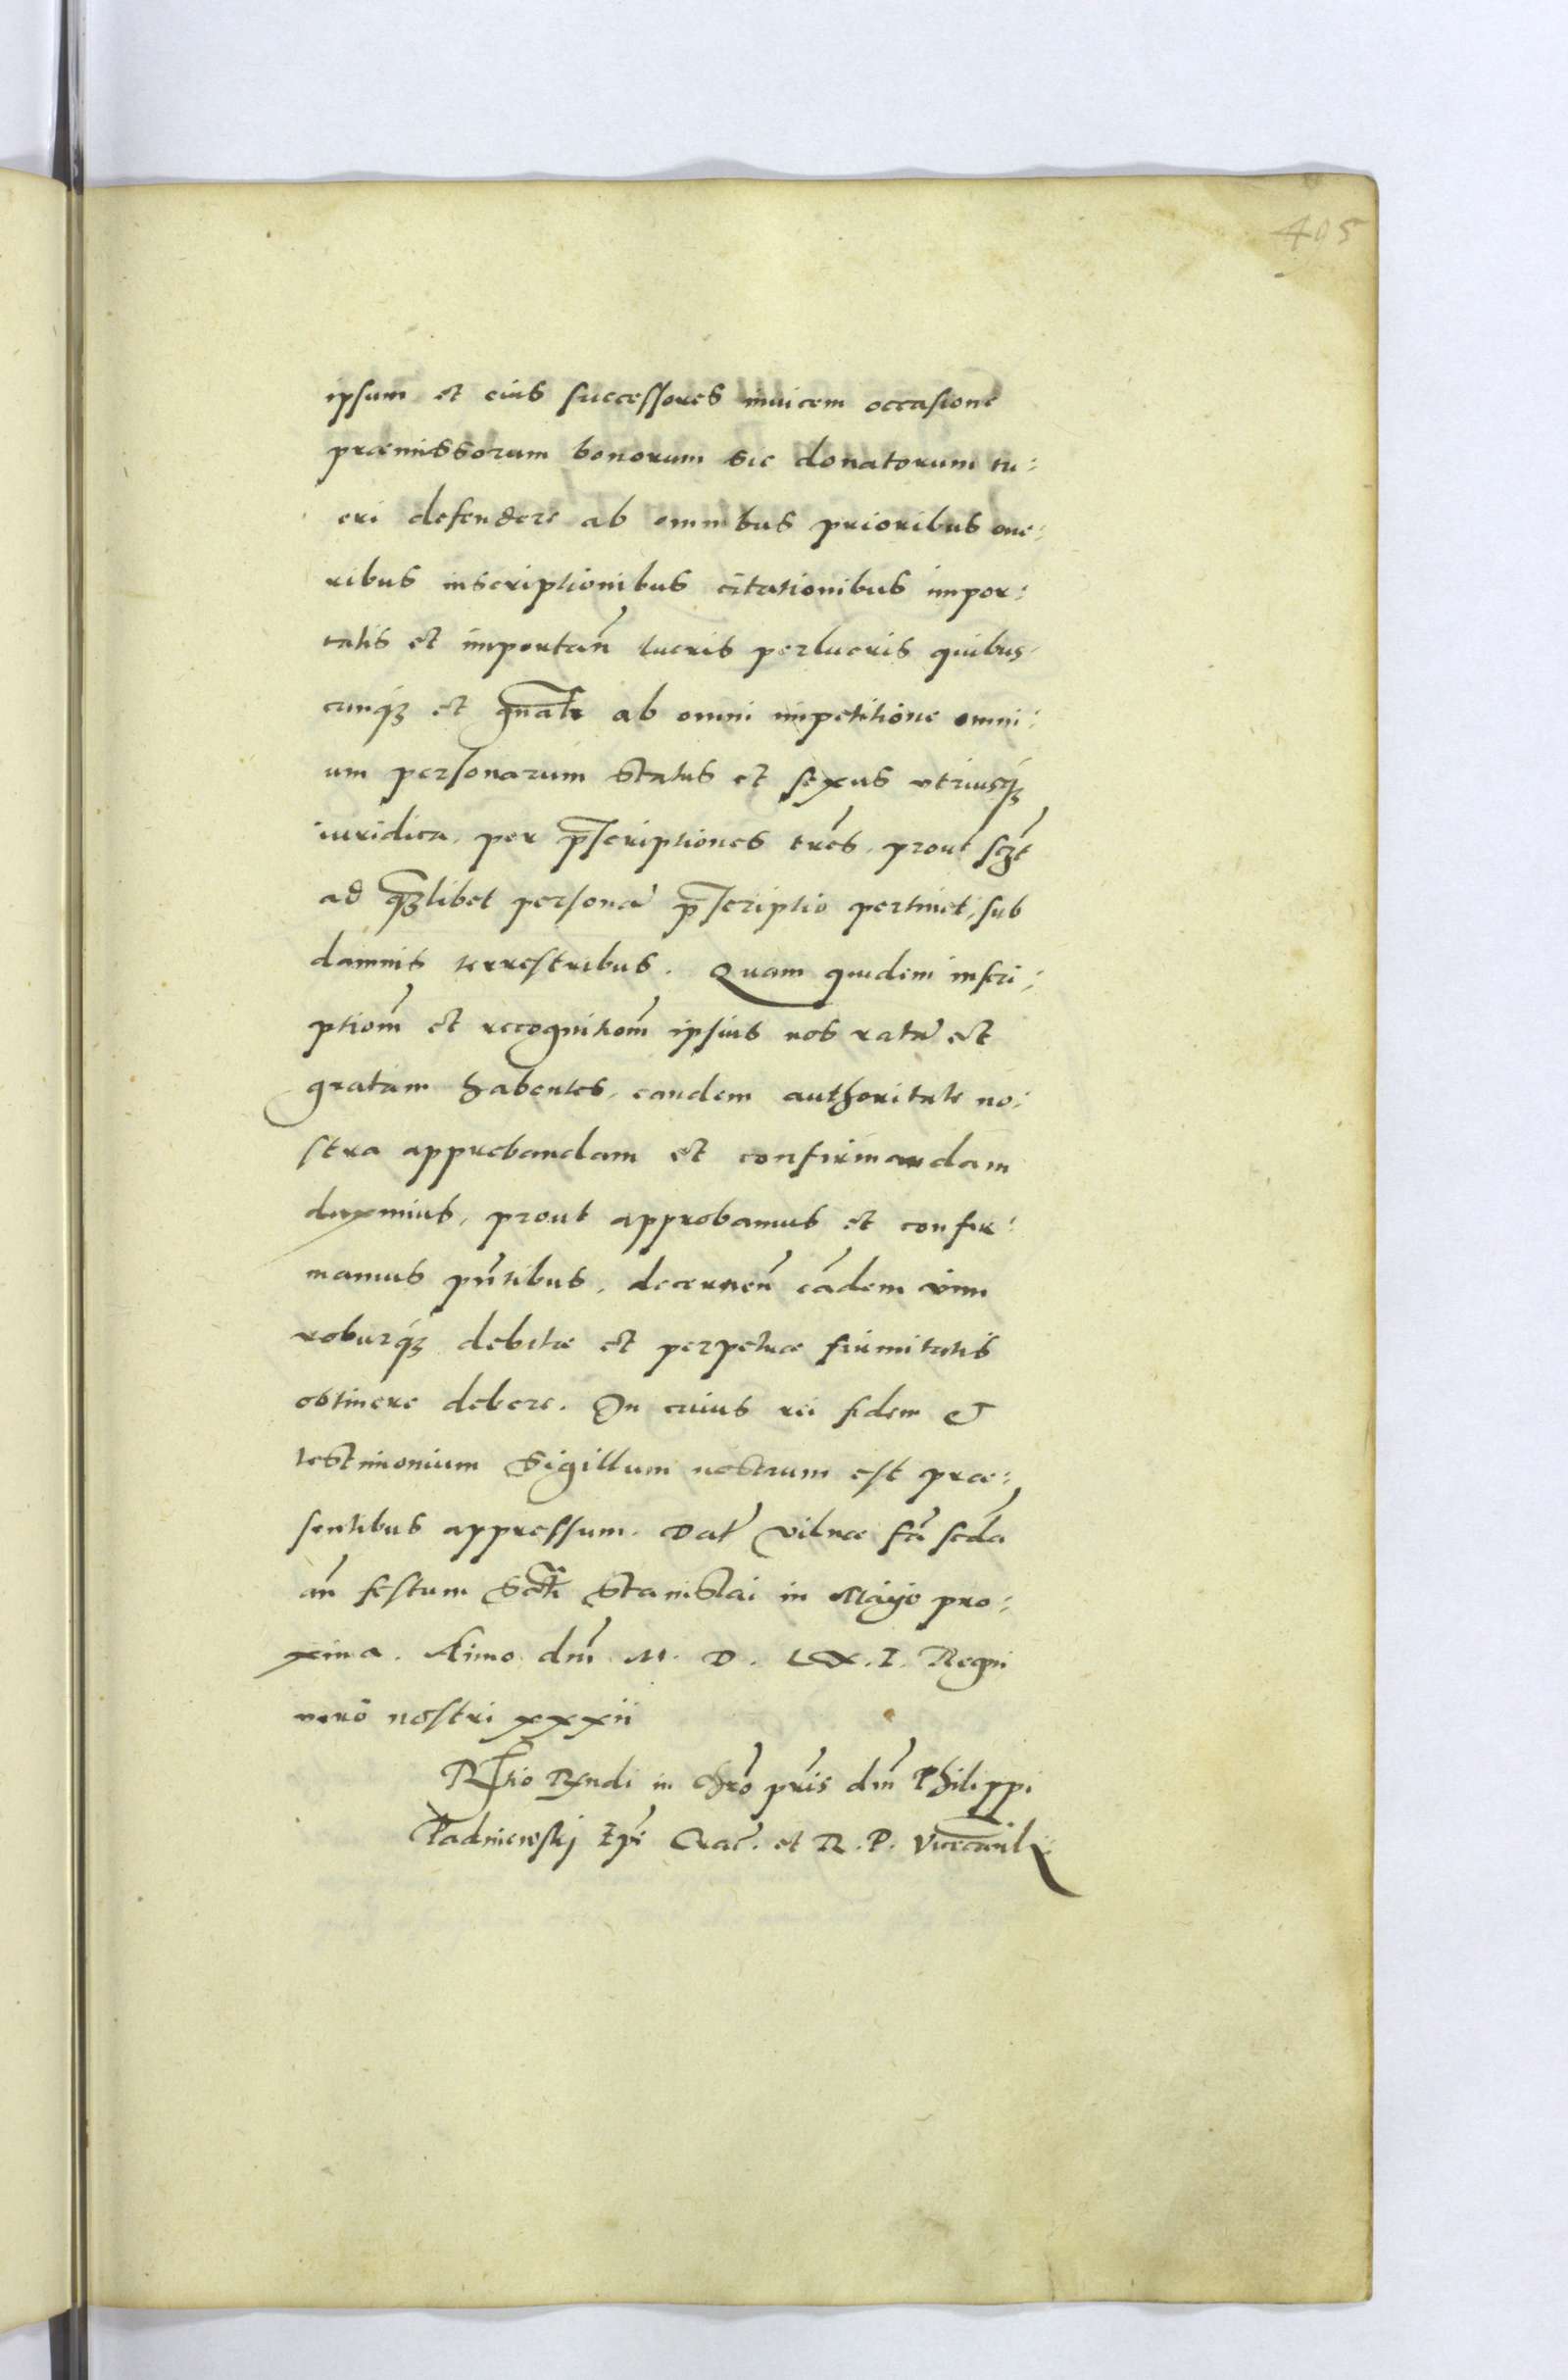 405
ipsum et eius successores inuicem occasione
præmissorum bonorum sic donatorum tu:
eri defendere ab omnibus prioribus one:
ribus inscriptionibus citationibus impor:
tatis et importañ lucris perlucris quibus
cunq́ꝫ et gnãlr ab omni impetitione omni:
um personarum status et sexus vtriusq́ꝫ
iuridica, per p̄scriptiones tres, prout sczt
ad q̄ꝫlibet personã p̄scriptio pertinet, sub
damnis terrestribus. Quam quidem inscri:
ptiom̃ et recognitiom̃ ipsius nos ratã et
gratam habentes, eandem authoritate no:
stra approbandam et confirmandam
duximus, prout approbamus et confir:
mamus pñtibus, decerneñ eãdem vim
roburq́ꝫ debitæ et perpetuæ firmitatis
obtinere debere. In cuius rei fidem &
testimonium Sigillum nostrum est præ:
sentibus appressum. Dat̃ Vilnæ fer̃ scdã
añ festum Scti Stanislai in Mayo pro:
xima. Anno dnĩ M. D. LX. I. Regni
vero nostri xxxii
Rlãtio Rndi in Chrõ pr̃is dnĩ Philippi
Padniewskj Epĩ Crac̃. et R. P. Vicecancel̃